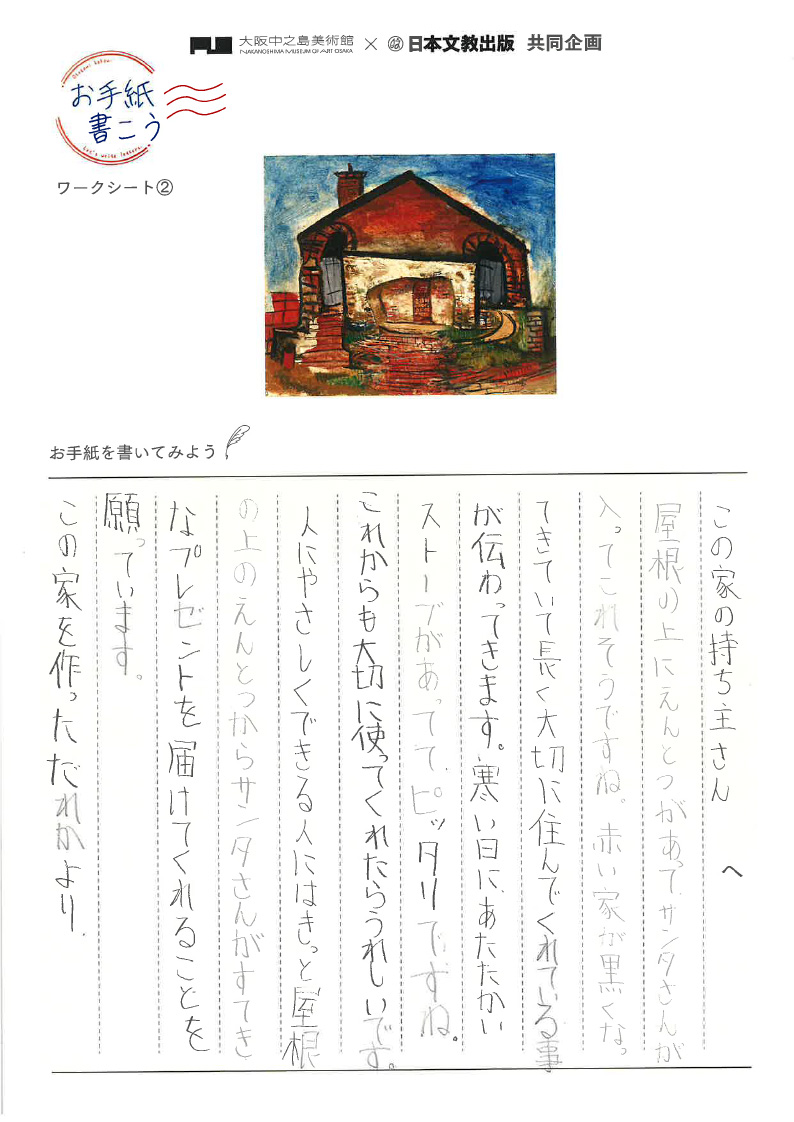 大阪中之島美術館 × 日本文教出版 共同企画
NAKANOSHIMA MUSEUM OF ART OSAKA
お手紙
書こう
Let's write letters.
ワークシート②
お手紙を書いてみよう
この家の持ち主さん へ
屋根の上にえんとつがあって、サンタさんが
入ってこれそうですね。赤い家が黒くなっ
てきていて長く大切に住んでくれている事
が伝わってきます。寒い日に、あたたかい
ストーブがあってて、ピッタリですね。
これからも大切に使ってくれたらうれしいです。
人にやさしくできる人にはきっと屋根
の上のえんとつからサンタさんがすてき
なプレゼントを届けてくれることを
願っています。
この家を作っただれかより.